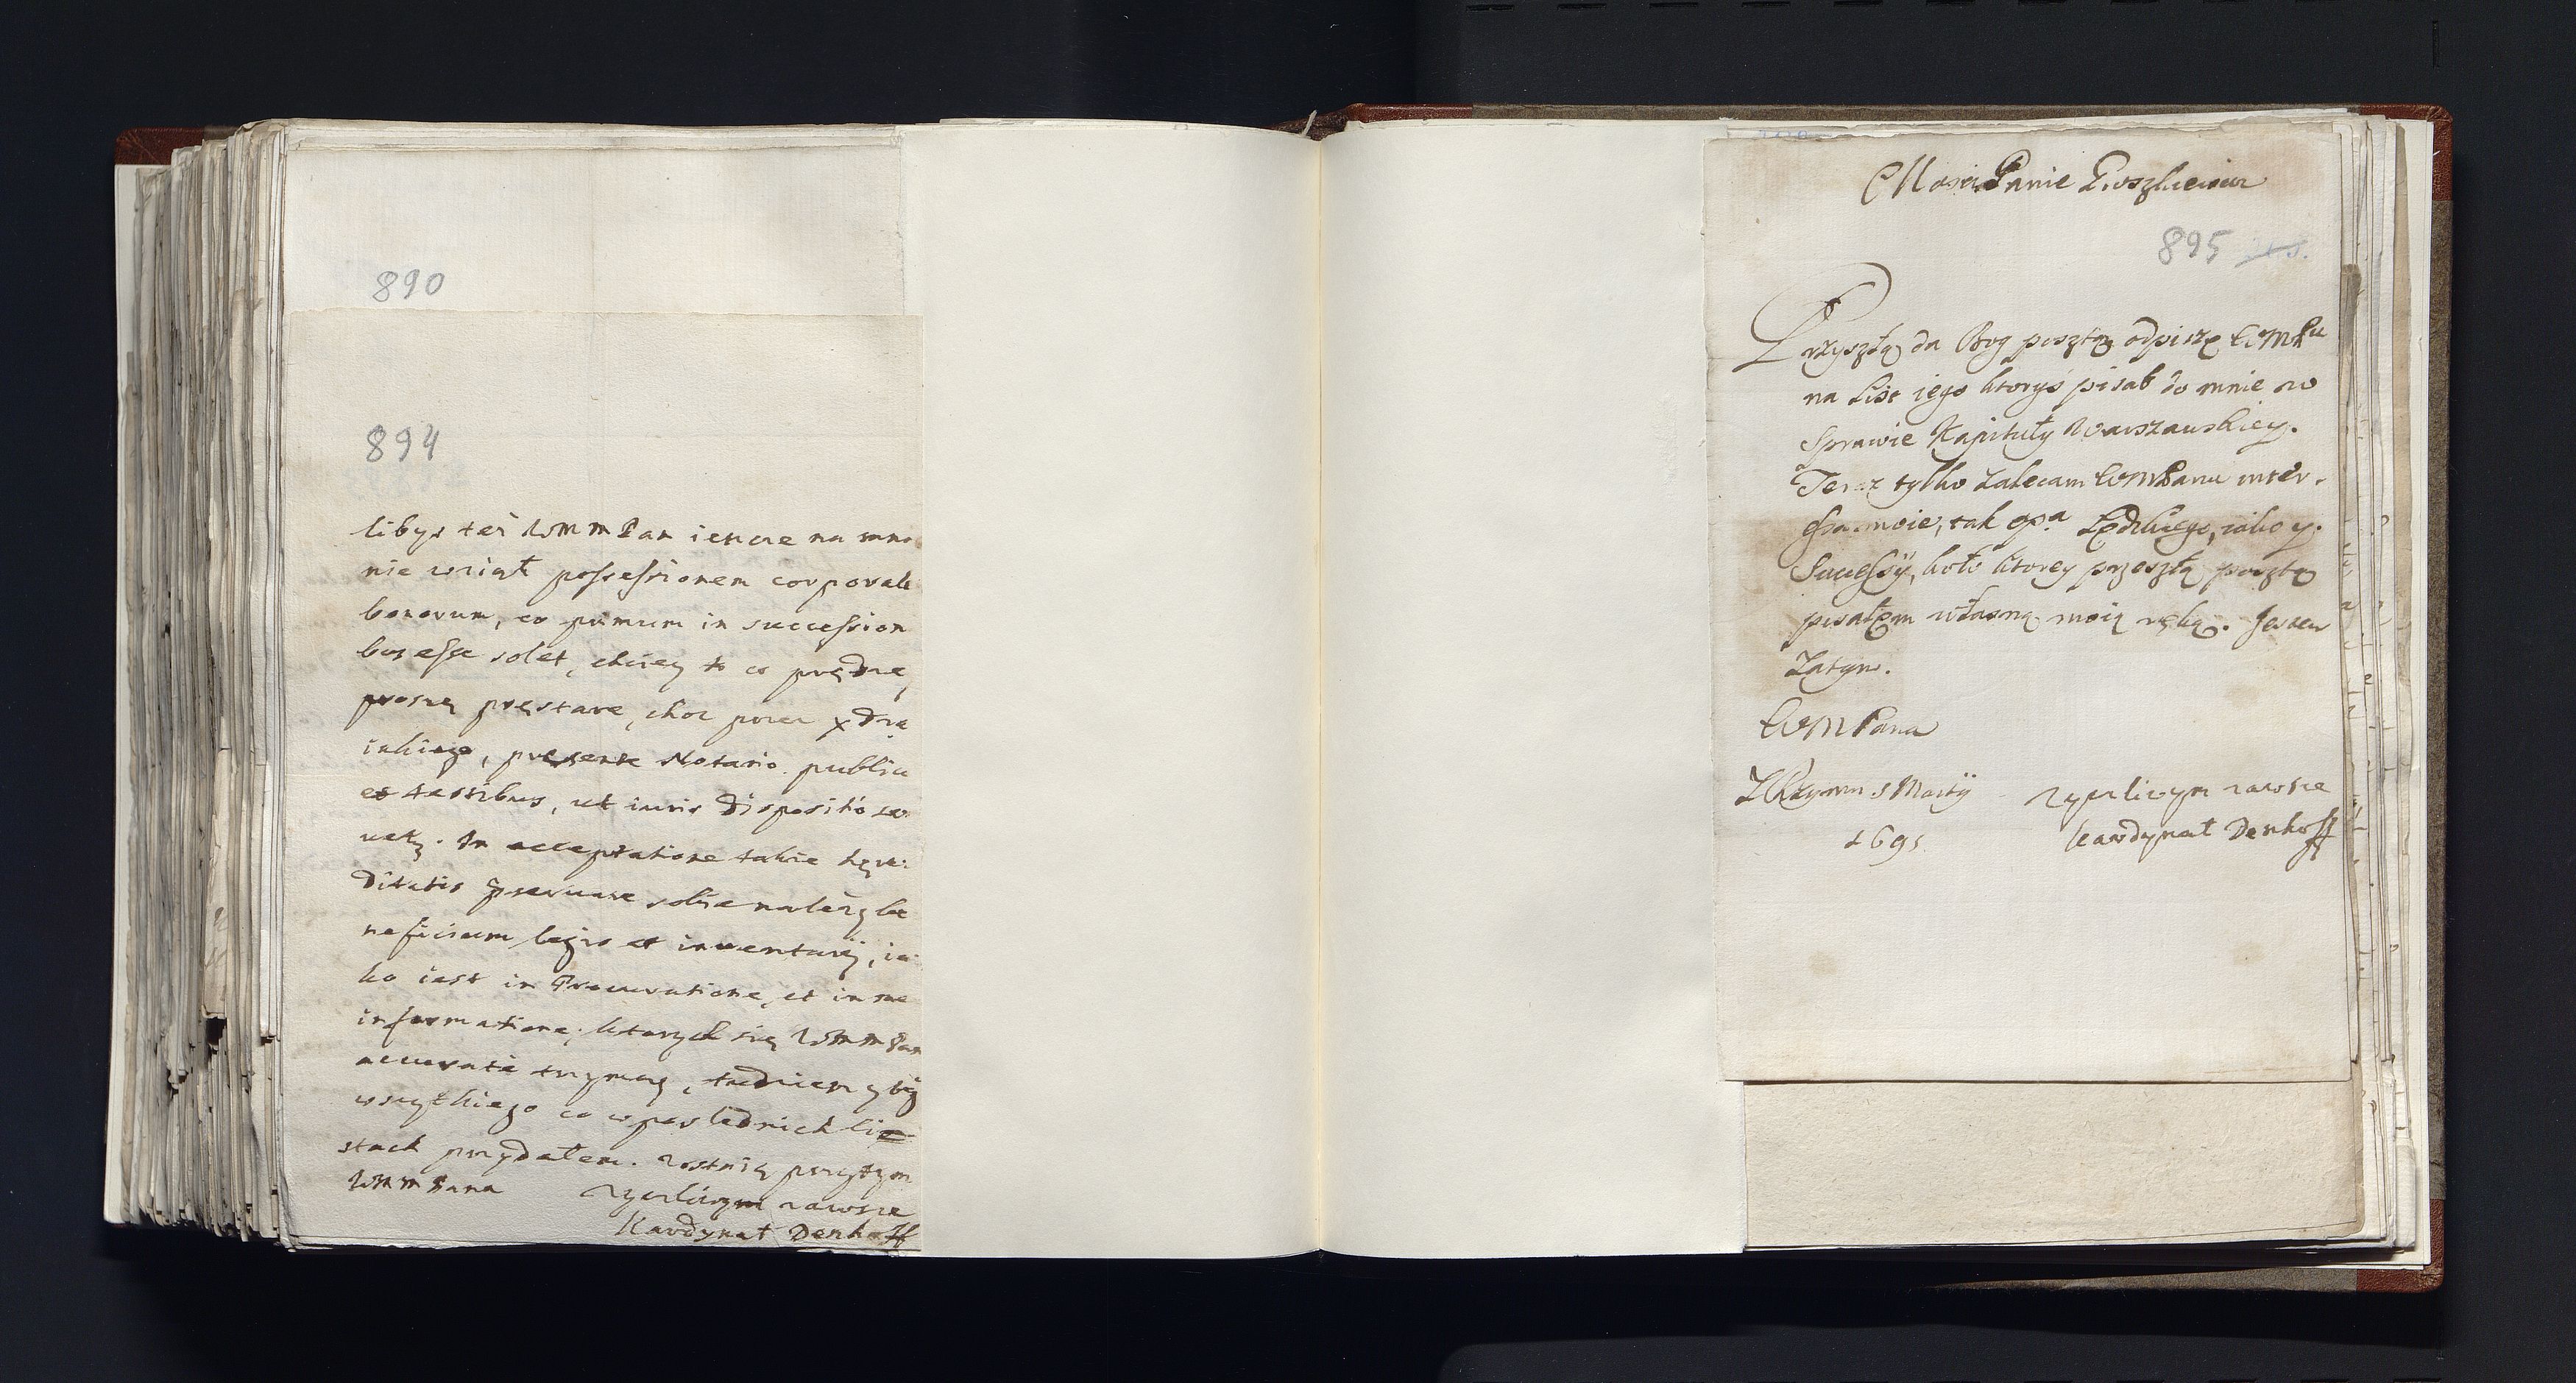 890
894
libys też WMM Pan ieszcze na mno
nie wziął possessionem corporale
bonorum, co primum in succession
bus esse solet, chciey to co prędzey
proszę pręstare, choc przez x Dzia
inskiego, presente Notario publico
et testibus, ut iuris dispositio ser
uet. In acceptatione takie hęre:
ditatis pservare sobie należy be
neficium legis et inventarij, ia
ko iest in Procuratione, et in me
informatione, ktorych się WMM Pan
accurate trzymay, tudziesz y tey
wszytkiego co w posledniech li
stach przydałem. Zostaię przytym
WMM Pana zyczliwym zawsze
Kardynał Denhoff
Mosci Panie Proszkiewicz
895
Przyszłą da Bog posztą odpiszę WMPu
na List iego ktorys pisał do mnie w
Sprawie Kapituły Warszawskiey.
Teraz tylko Zalecam WMPanu inter.
essa moie, tak opa Lędzkiego, iako y
Successÿ, koło ktorey przeszłą posztą
pisałem własną moią ręką. Jestem
Zatym.
WMPana
Z Rzymu 5 Martÿ zyczliwym zawsze
1695 Kardynał Denhoff